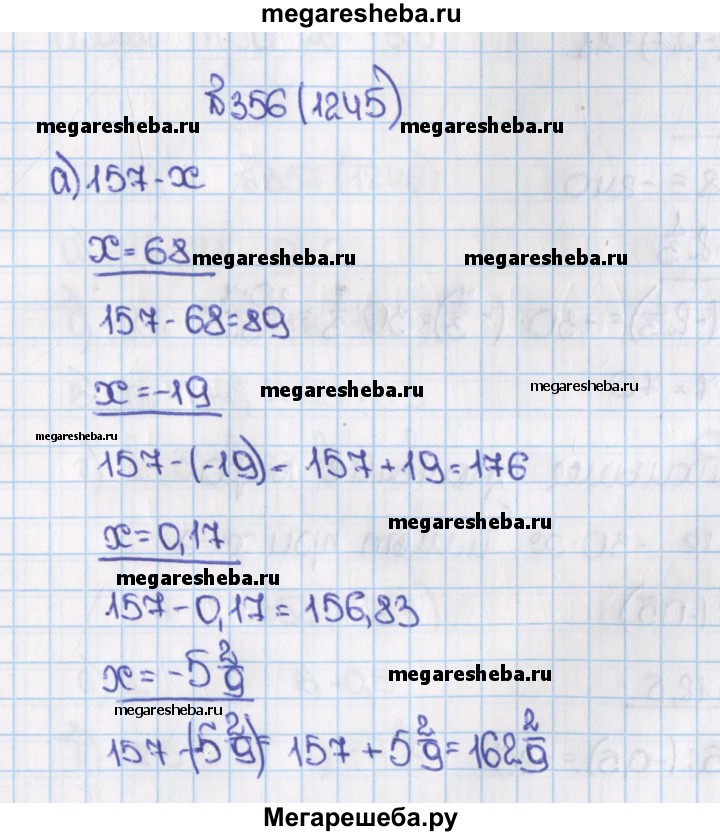 megaresheba.ru
№356 (1245)
megaresheba.ru megaresheba.ru
а) 157 - x
x = 68 megaresheba.ru megaresheba.ru
157 - 68 = 89
x = -19 megaresheba.ru megaresheba.ru
megaresheba.ru
157 - (-19) = 157 + 19 = 176
x = 0,17 megaresheba.ru
megaresheba.ru
157 - 0,17 = 156,83
x = -5 2/9 megaresheba.ru
megaresheba.ru
157 - (5 2/9) = 157 + 5 2/9 = 162 2/9
Мегарешеба.ру